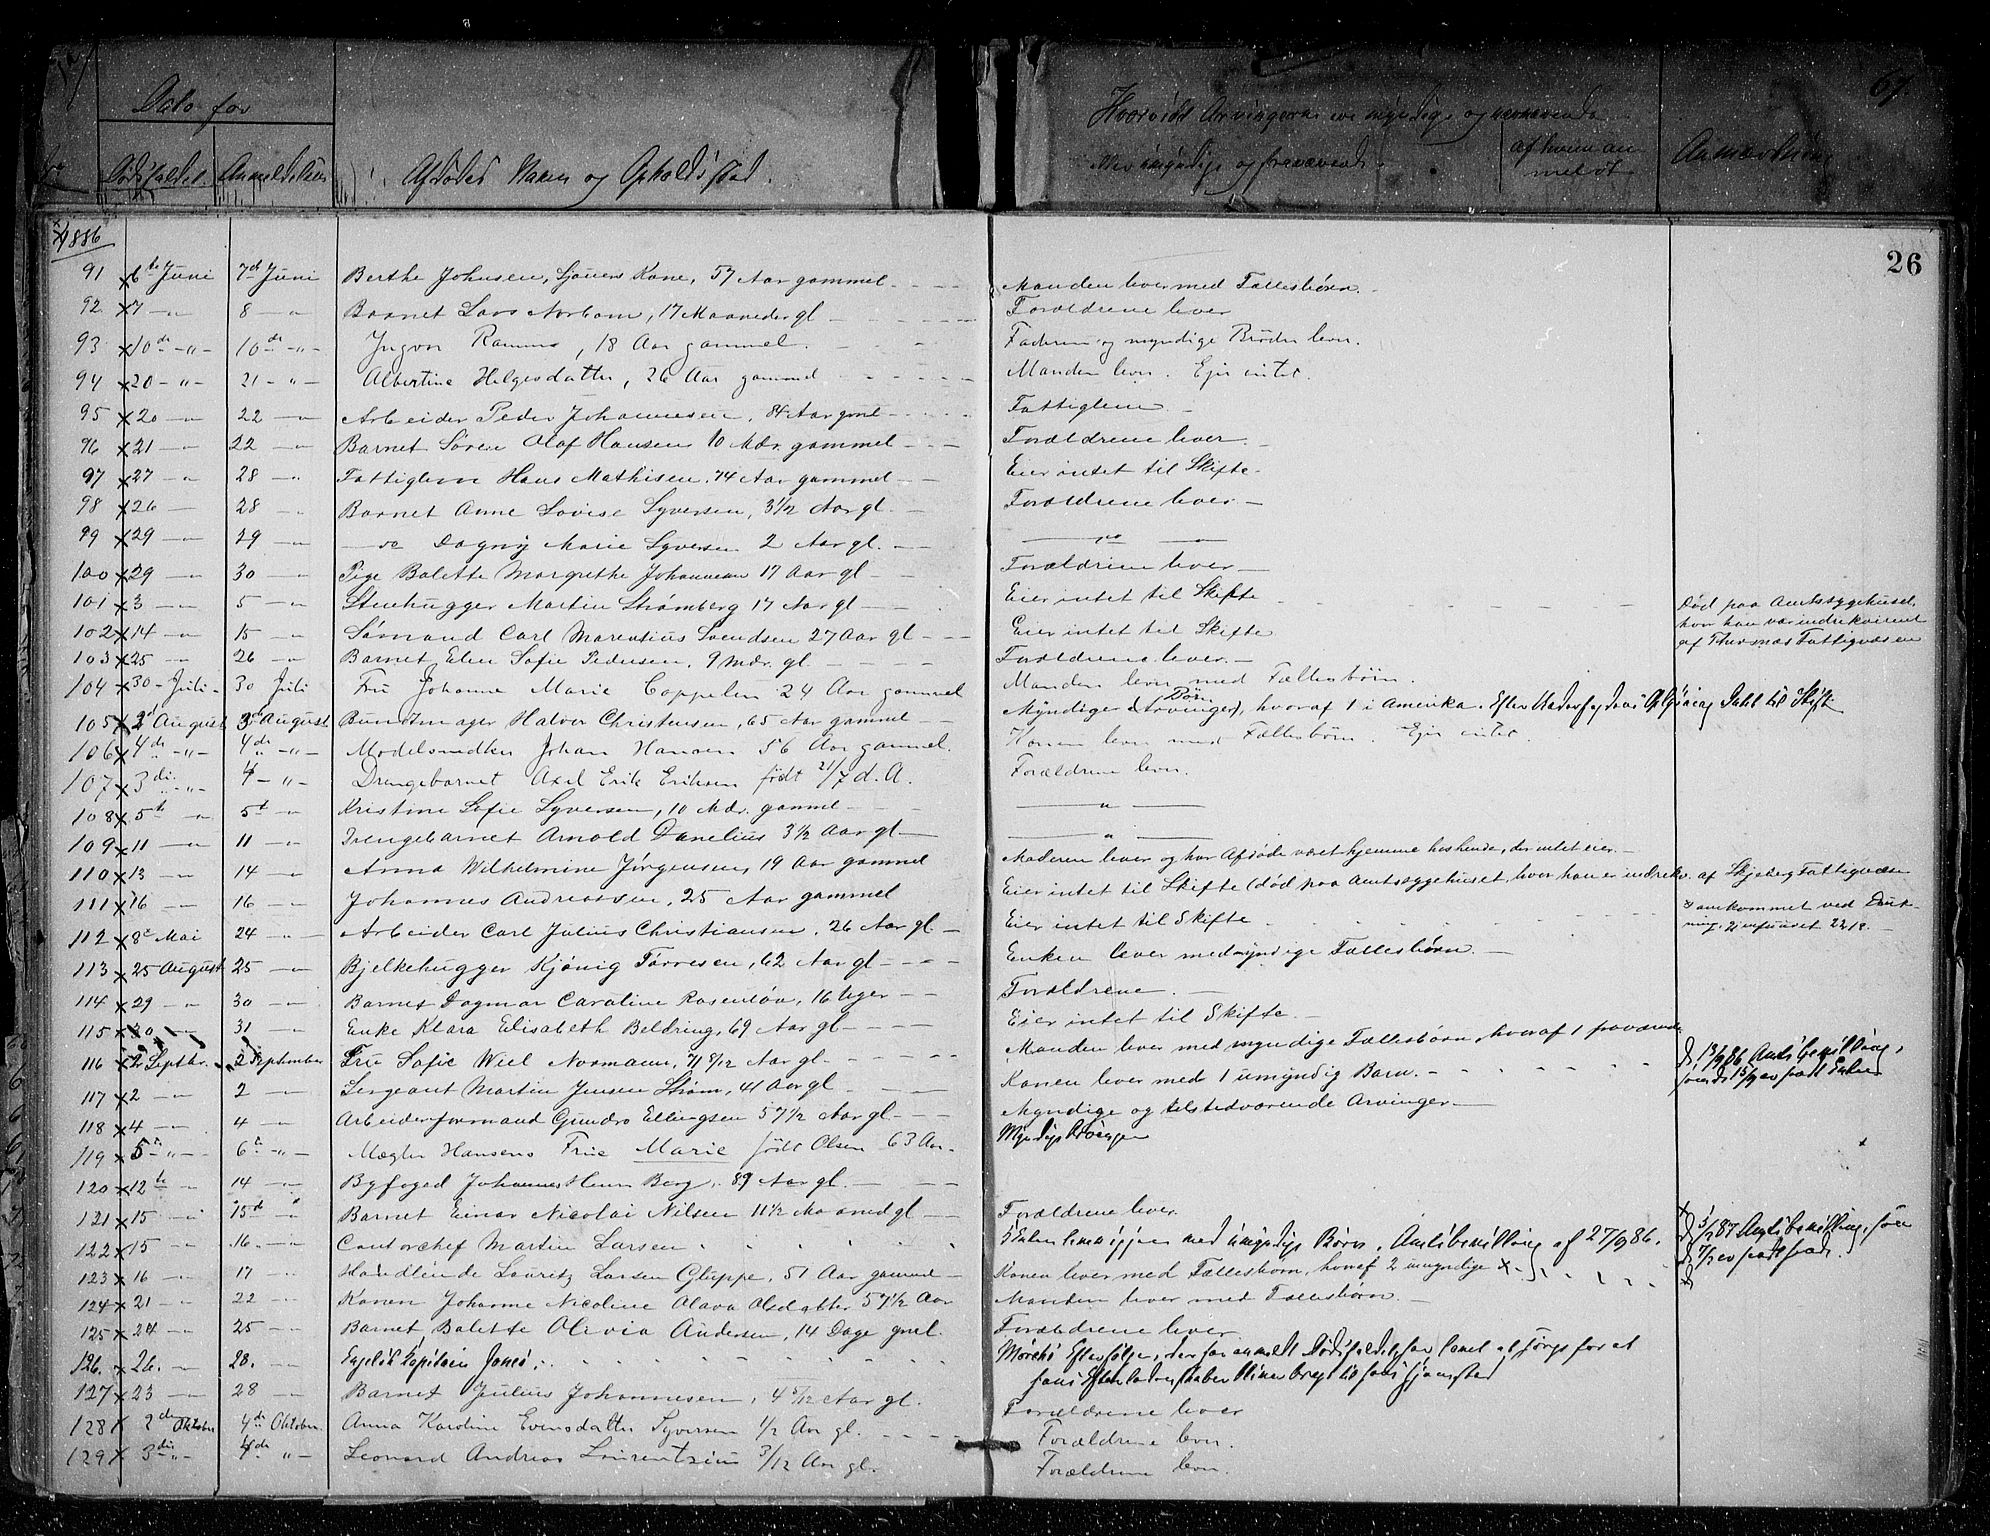 Dato for
Dødsfaldet. Anmeldelsen
Afdødes Navn og Opholdsstad.
Hvorvidt Arvingerne ere myndige og nærværende
eller umyndige og fraværende.
af hvem anmeldt
Anmærkning
67.
26
1886
91 6te Juni 7de Juni Berthe Johnsen, Sjouers Kone, 57 Aar gammel Manden lever med Fællesbørn.
92 7 — " 8 — " Barnet Lars Norbom, 17 Maaneder gl Forældrene lever
93 10de — " — 10de — " — Ingvor Ramms, 18 Aar gammel. Faderen og myndige Brødre lever.
94 20 — " — 21 — " — Albertine Helgesdatter, 26 Aar gammel Manden lever. Ejer intet.
95 20 — " 22 — " Arbeider Peder Johannesen, 84 Aar gml Fattiglem
96 21 — " 22 — " Barnet Søren Olaf Hansen 10 Mdr. gammel Forældrene lever.
97 27 — " 28 — " Fattiglem Hans Mathisen, 74 Aar gammel Eier intet til Skifte
98 26 — 28 — " Barnet Anne Lovise Syversen, 3 1/2 Aar gl. Forældrene lever
99 29 — " 29 — " — do Dagny Marie Syversen 2 Aar gl. — do —
100 29 — " 30 — " Pige Bolette Margrethe Johannesen 17 Aar gl Forældrene lever
101 3 — " 5 — " Stenhugger Martin Strømberg 17 Aar gl Eier intet til Skifte Død paa Amtssygehuset,
102 14 — " 15 — " Sømand Carl Marentius Svendsen 27 Aar gl Eier intet til Skifte hvor han var indrekvireret
103 25 — " 26 — " Barnet Elen Sofie Pedersen, 9 Mdr. gl Forældrene lever. af Thurønæs Fattigvæsen
104 30 — Juli — 30 Juli Fru Johanne Marie Cappelen 24 Aar gammel Manden lever med Fællesbørn.
105 2d August 3d August Bundtmager Halvor Christensen, 65 Aar gammel Myndige (Arvinger) Børn, hvoraf 1 i Amerika. Efter Skifte
106 4de — " — 4de — " — Modelsnedker Johan Hansen 56 Aar gammel. Konen lever med Fællesbørn. Ejer intet.
107 3die — " — 4 — " — Drengebarnet Axel Erik Eriksen født 21/7 d. A. Forældrene lever.
108 5te " 5te — " Kristine Sofie Syversen, 10 Mdr. gammel — " —
109 11 — " 11 — " Drengebarnet Arnold Danelius 3 1/2 Aar gl — " —
110 13 — " 14 — " Anna Wilhelmine Jørgensen, 19 Aar gammel Moderen lever og har Afdøde været hjemme hos hende, der intet eier.
111 16 — " 16 — " Johannes Andreassen, 25 Aar gammel Eier intet til Skifte (død paa Amtssygehuset, hvor han er indrekv. af Skjeberg Fattigvæsen
112 8e Mai 24 — " Arbeider Carl Julius Christiansen, 26 Aar gl Eier intet til Skifte omkommet ved Drukning,
113 25 August 25 — " Bjelkehugger Kjønig Tørresen, 62 Aar gl Enken lever med myndige Fællesbørn.
114 29 — " 30 — " Barnet Dagmar Caroline Rosenløv, 16 Uger Forældrene.
115 30 — " 31 — " Enke Klara Elisabeth Beldring, 69 Aar gl Eier intet til Skifte.
116 2 Septbr. 2 September Fru Sofie Wiel Normann, 71 8/12 Aar gl Manden lever med myndige Fællesbørn, hvoraf 1 fraværende
117 2 — " 2 — " Sergeant Martin Jensen Strøm, 41 Aar gl Konen lever med 1 umyndig Barn. 13/9 86 Amtsbevilling,
118 4 — " 4 — " Arbeiderformand Gundro Ellingsen 57 1/2 Aar gl Myndige og tilstedværende Arvinger
119 5e — " — 6e — " — Mægler Hansens Frue Marie født Olsen 63 Aar. Myndige Arvinger
120 12te 14 — " Byfoged Johannes Henr Berg, 89 Aar gl.
121 15 — " 15de " Barnet Einar Nicolai Nilsen 11 1/2 Maaned gl Forældrene lever.
122 15 — " 16. — " Contorchef Martin Larsen med umyndige Børn. Amtsbevilling af 27/9 86. 5/1 87 Amtsbevilling,
123 16 — " 17 — " Handlende Lauritz Larsen Gluppe, 51 Aar gammel Konen lever med Fællesbørn, hvoraf 2 umyndige
124 21 — " 22 — " Konen Johanne Nicoline Olava Olsdatter 57 1/2 Aar Manden lever med Fællesbørn.
125 24 — " 25 — " Barnet Bolette Olivia Andersen, 14 Dage gml. Forældrene lever
126. 26. — " 28. — " Engelsk Kapitain Jones. Mørchs Efterfølger, der har anmeldt Dødsfaldet, har lovet at sørge for at
hans Efterladenskaber bliver bragt til hans Hjemsted
127 23 — " 28 — " Barnet Julius Johannesen, 4 5/12 Aar gl. Forældrene lever
128 2den Oktober 4de Oktober. Anna Karoline Evensdatter Syversen 1/2 Aar gl. Forældrene lever.
129 3die " — 4de " — Leonard Andreas Laurentzius 3/12 Aar gl. Forældrene lever.